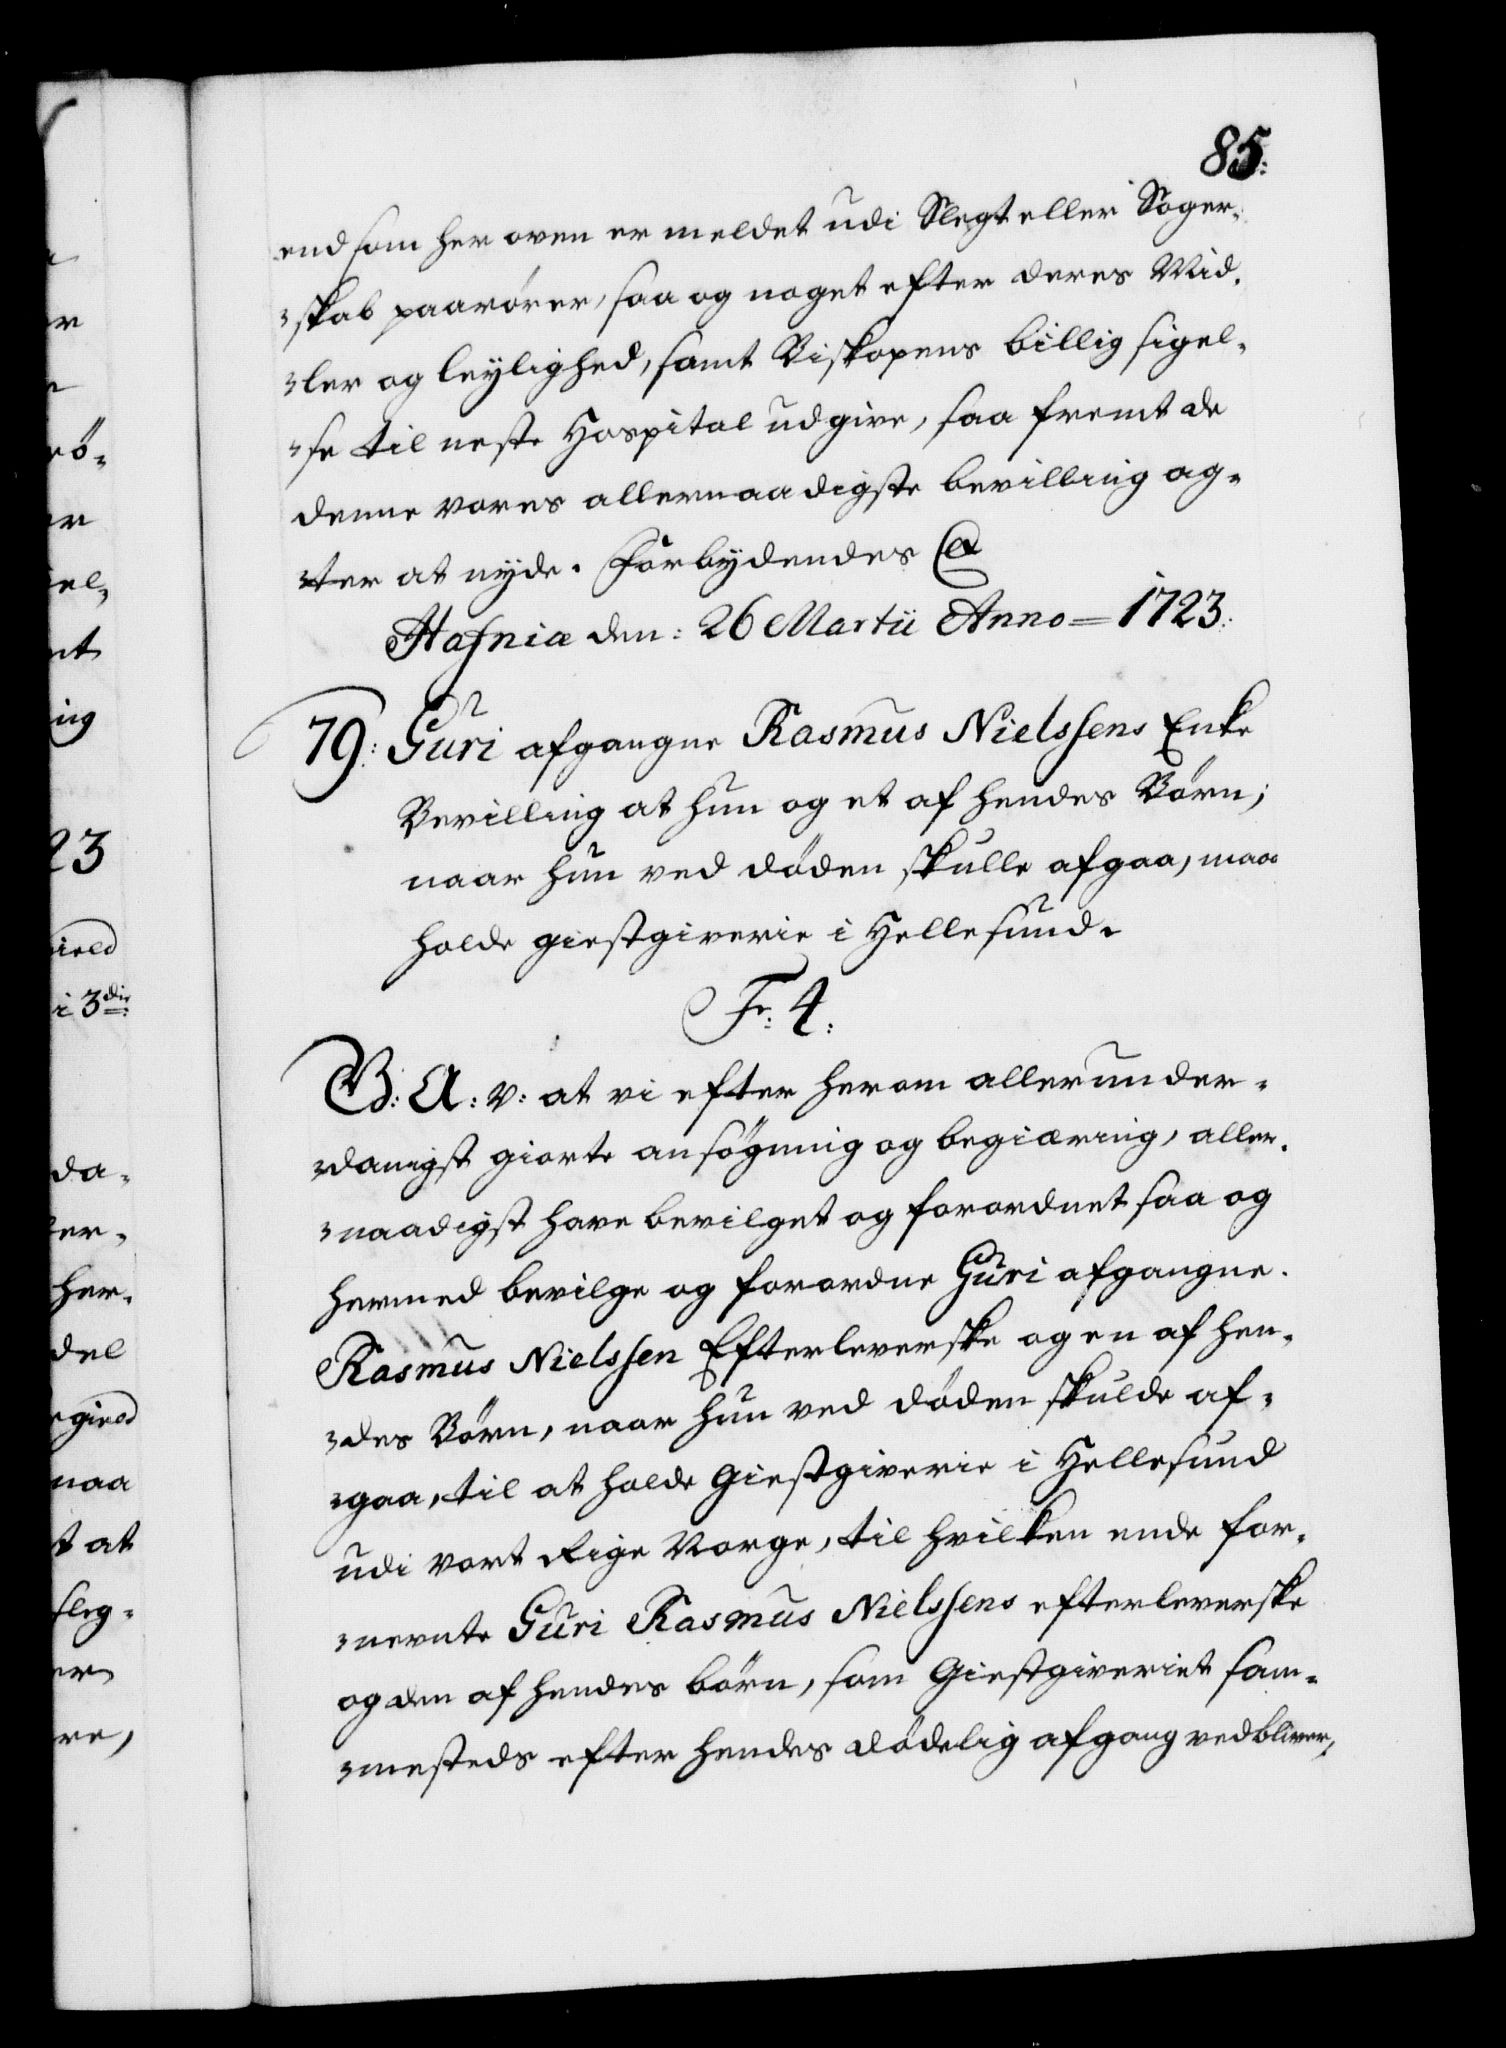 85:
end som her oven er meldet udi Slegt eller Soger-
-skab paarörer, saa og noget efter deres Mid-
-ler og leylighed, samt Biskopens billig sigel-
-se til neste Hospital udgive, saa fremt de
denne vores allernaadigste bevilling ag-
-ter at nyde. Forbydendes &
Hafniæ den: 26 Martii Anno = 1723:
79: Guri afgangne Rasmus Nielssens Enke
Bevilling at hun og et af hendes Börn,
naar hun ved döden skulle afgaa, maa
holde giestgiverie i Hellesund.
Fr: 4:
G: A: V: at vi efter herom allerunder-
-danigst giorte ansögning og begiæring, aller-
-naadigst have bevilget og forordnet saa og
hermed bevilge og forordne Guri afgangne
Rasmus Nielssen Efterleverske og en af hen-
-des Börn, naar hun ved döden skulde af-
-gaa, til at holde Giestgiverie i Hellesund
udi vort Rige Norge, til hvilken ende for-
-nevnte Guri Rasmus Nielssens efterleverske
og den af hendes börn, som Giestgiveriet sam-
-mesteds efter hendes dödelig afgang vedbliver,
ö-
er
el-
nt
ing
23
i 3die
da-
er-
her-
del
naa
t at
sleg-
er
re,